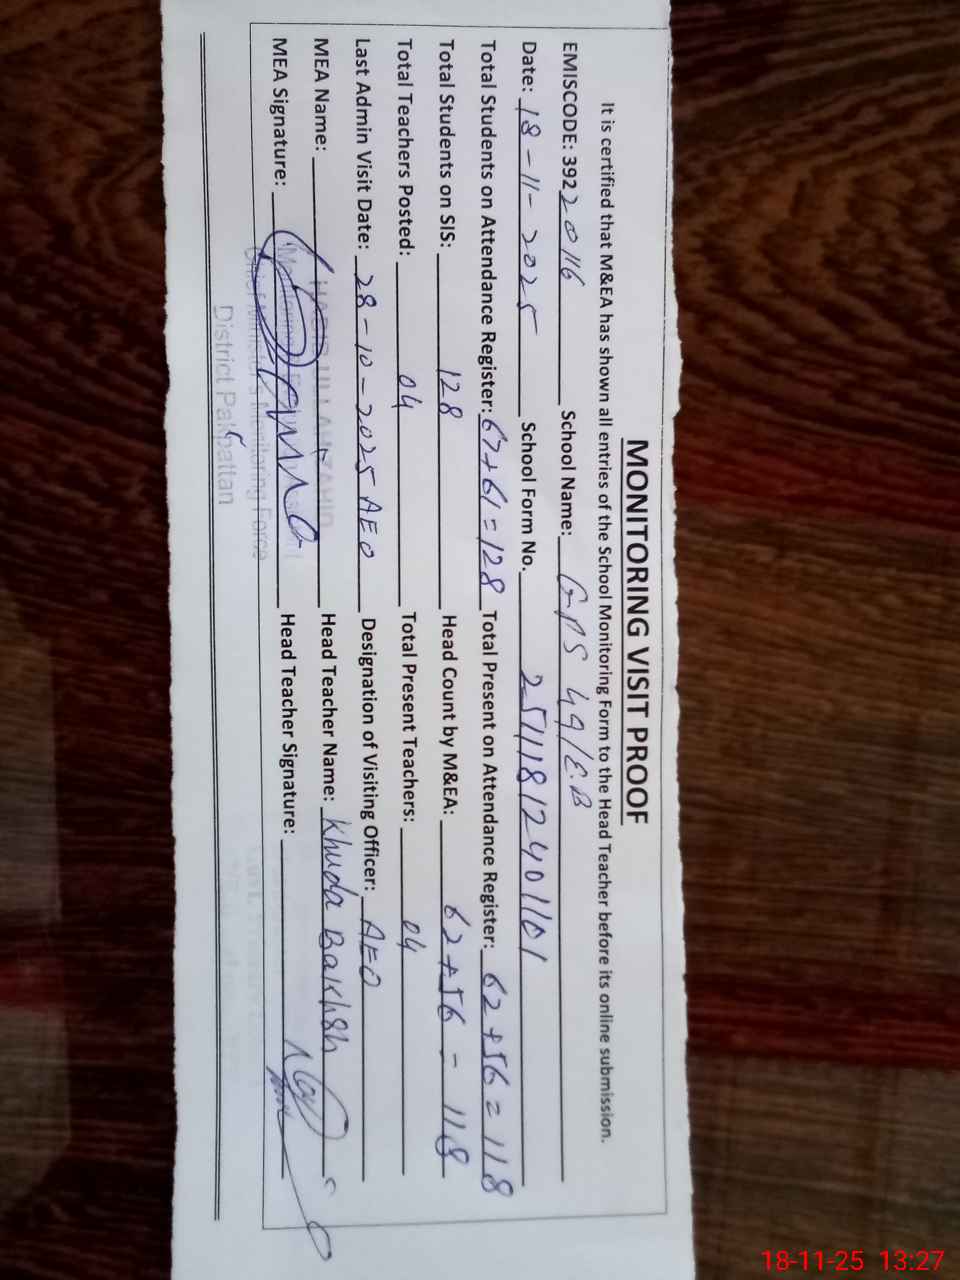 MONITORING VISIT PROOF
It is certified that M&EA has shown all entries of the School Monitoring Form to the Head Teacher before its online submission.
EMISCODE: 39220116 School Name: GPS 49/E.B
Date: 18-11-2025 School Form No. 25111812401101
Total Students on Attendance Register: 67+61=128 Total Present on Attendance Register: 62+56=118
Total Students on SIS: 128 Head Count by M&EA: 62+56-118
Total Teachers Posted: 04 Total Present Teachers: 04
Last Admin Visit Date: 28-10-2025 AEO Designation of Visiting Officer: AEO
MEA Name: Head Teacher Name: Khuda Bakhsh
MEA Signature: Head Teacher Signature:
Monitoring Force
District Pakpattan
18-11-25 13:27